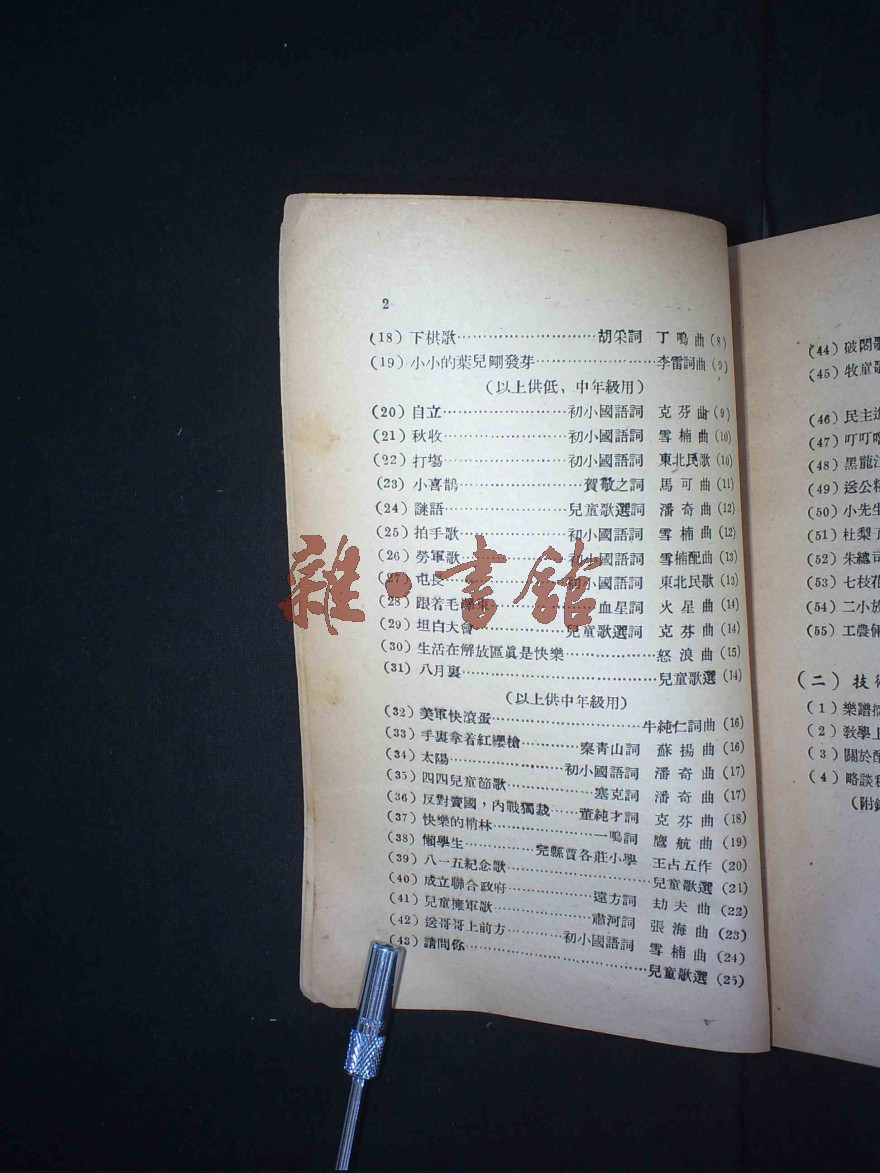 2
(18) 下棋歌……………………胡采詞 丁鳴曲 (8)
(19) 小小的葉兒剛發芽………………李雷詞曲 (9)
(以上供低、中年級用)
(20) 自立………………初小國語詞 克芬曲 (9)
(21) 秋收………………初小國語詞 雪楠曲 (10)
(22) 打場………………初小國語詞 東北民歌 (10)
(23) 小喜鵲………………賀敬之詞 馬可曲 (11)
(24) 謎語………………兒童歌選詞 潘奇曲 (12)
(25) 拍手歌………………初小國語詞 雪楠曲 (12)
(26) 勞軍歌………………初小國語詞 雪楠配曲 (13)
(27) 屯長………………初小國語詞 東北民歌 (13)
(28) 跟着毛澤東………………血星詞 火星曲 (14)
(29) 坦白大會………………兒童歌選詞 克芬曲 (14)
(30) 生活在解放區眞是快樂………………怒浪曲 (15)
(31) 八月裏………………兒童歌選 (14)
(以上供中年級用)
(32) 美軍快滾蛋………………牛純仁詞曲 (16)
(33) 手裏拿着紅纓槍………………秦青山詞 蘇揚曲 (16)
(34) 太陽………………初小國語詞 潘奇曲 (17)
(35) 四四兒童節歌………………塞克詞 潘奇曲 (17)
(36) 反對賣國，內戰獨裁………董純才詞 克芬曲 (18)
(37) 快樂的梢林………………一鳴詞 鷹航曲 (19)
(38) 懶學生………………完縣賈各莊小學 王占五作 (20)
(39) 八一五紀念歌………………兒童歌選 (21)
(40) 成立聯合政府………………遠方詞 劫夫曲 (22)
(41) 兒童擁軍歌………………肅河詞 張海曲 (23)
(42) 送哥哥上前方………初小國語詞 雪楠曲 (24)
(43) 請問你………………兒童歌選 (25)
(44) 破悶
(45) 牧童
(46) 民主
(47) 叮叮
(48) 黑龍
(49) 送公
(50) 小先生
(51) 杜梨
(52) 朱總司
(53) 七枝花
(54) 二小放
(55) 工農
(二) 技
(1) 樂譜
(2) 敎學上
(3) 關於
(4) 略談
(附
雜·書館